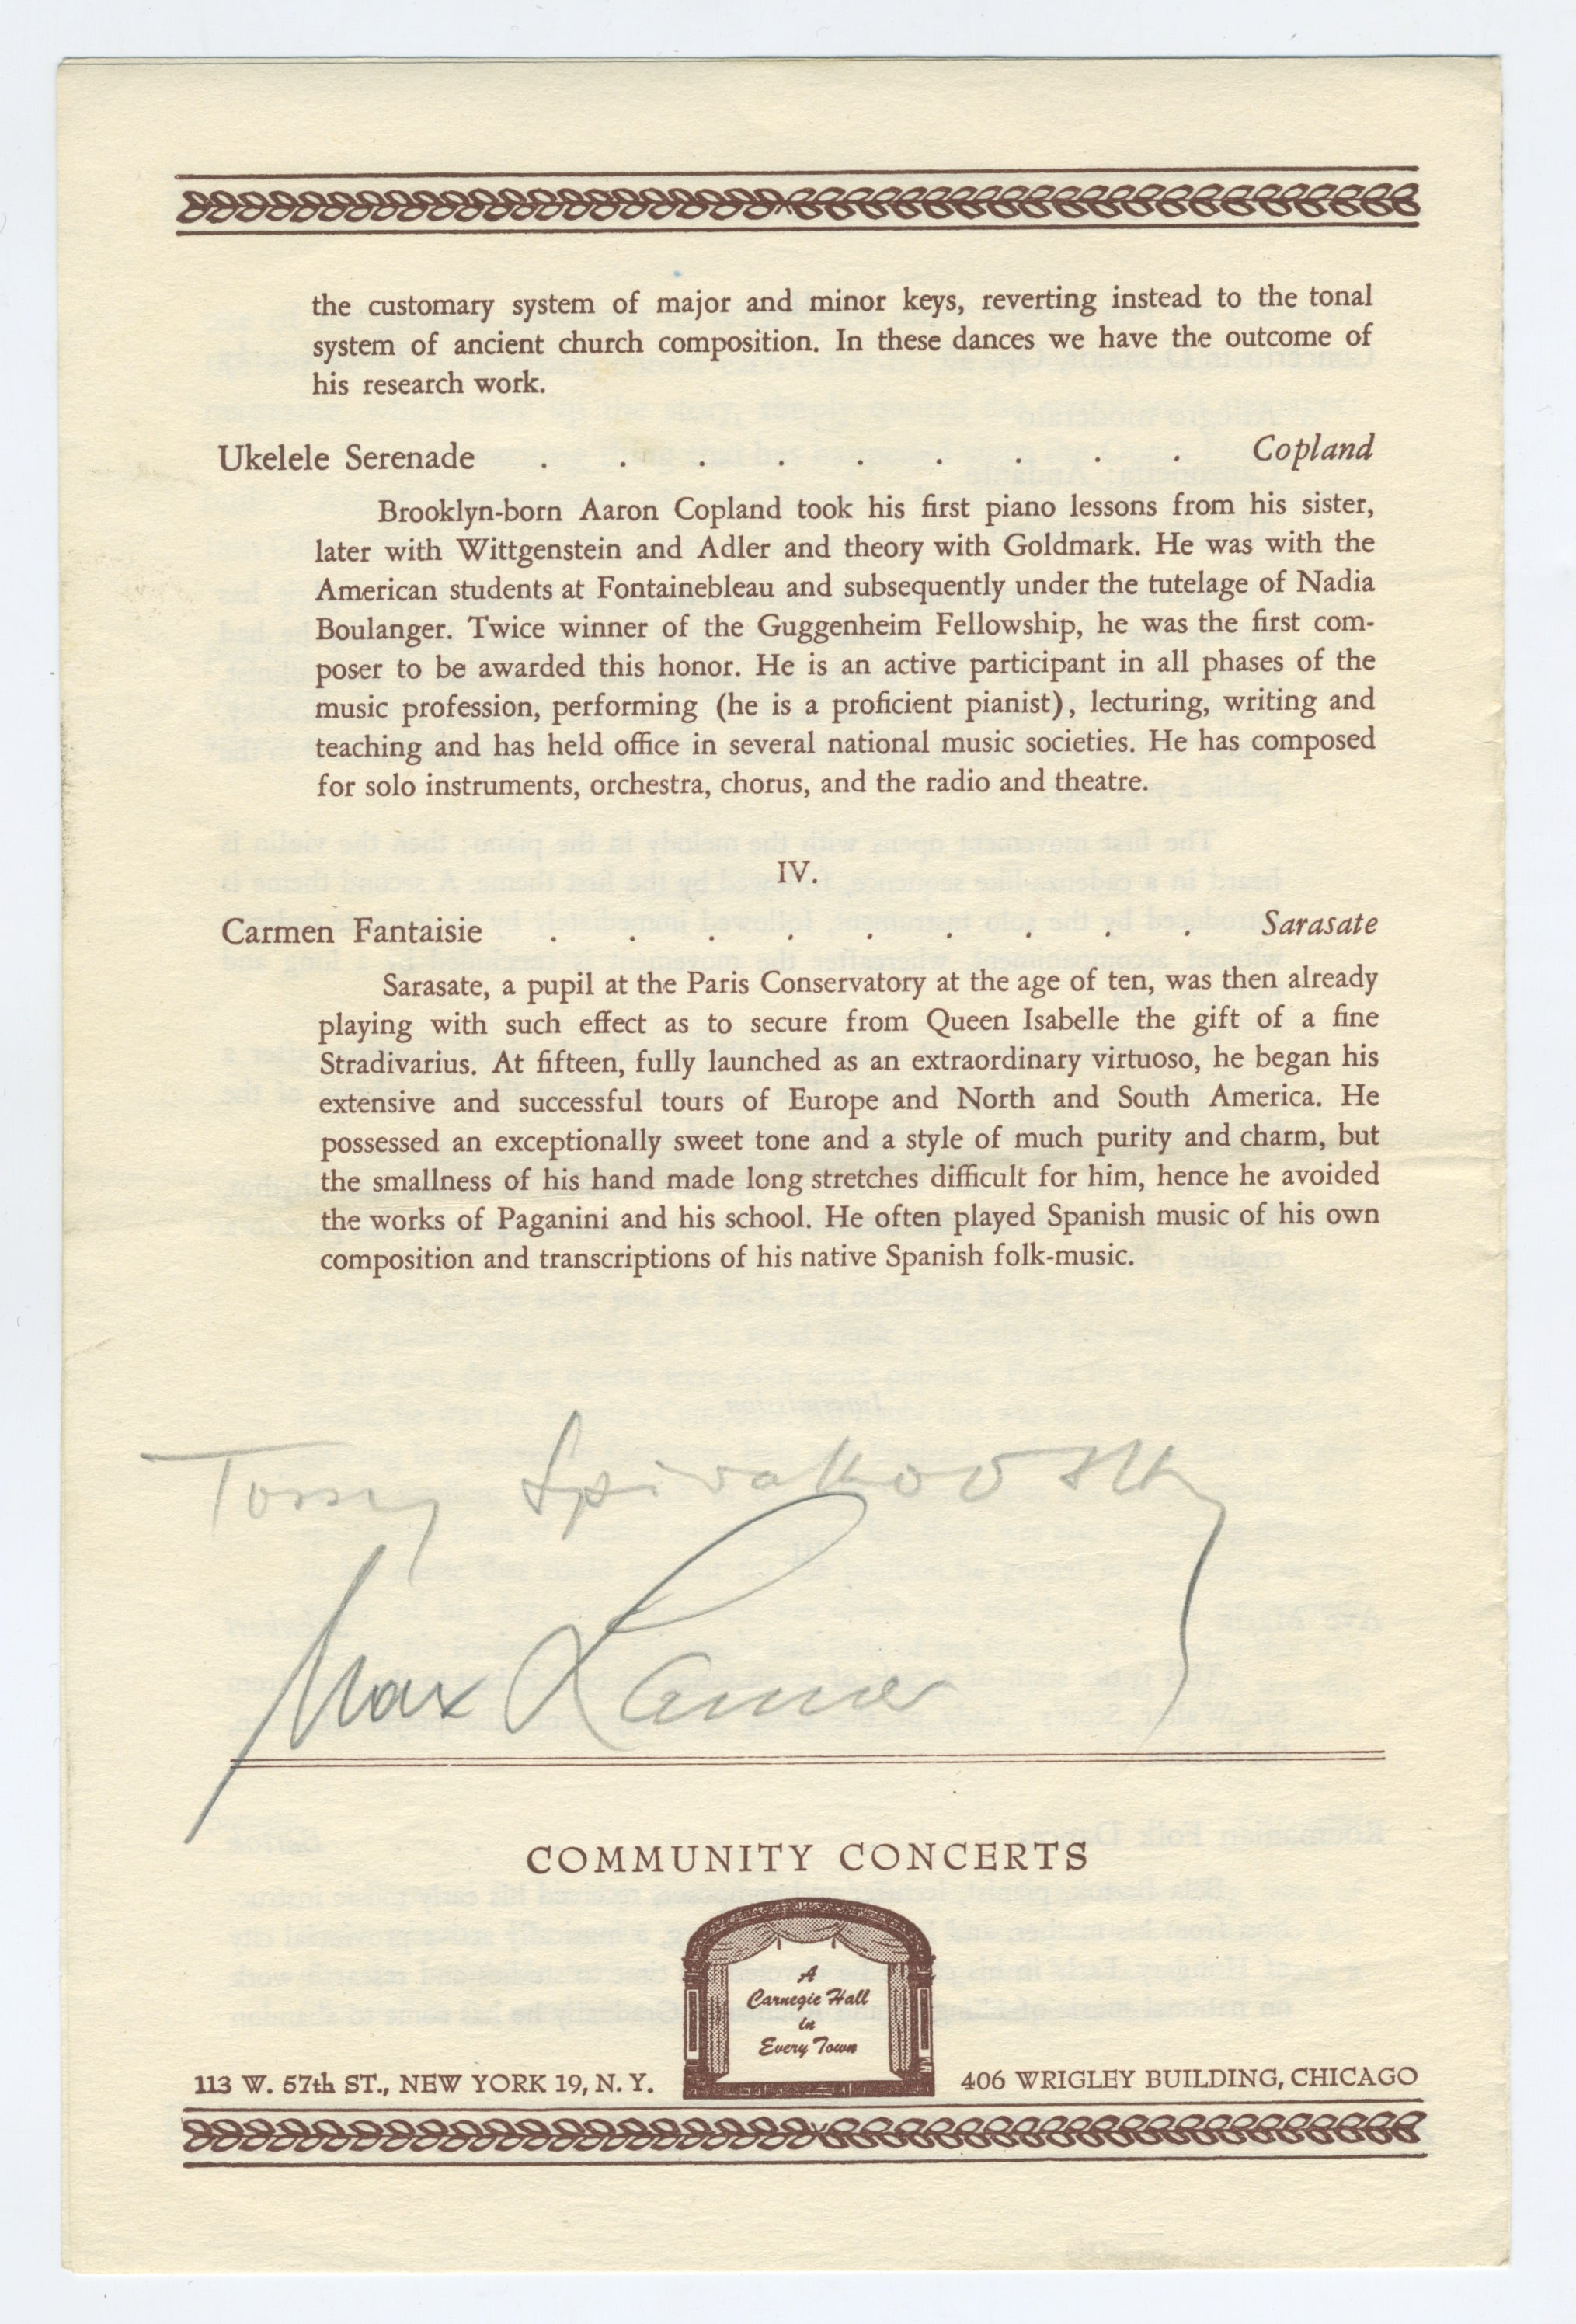 the customary system of major and minor keys, reverting instead to the tonal
system of ancient church composition. In these dances we have the outcome of
his research work.
Ukelele Serenade . . . . . . . . . Copland
Brooklyn-born Aaron Copland took his first piano lessons from his sister,
later with Wittgenstein and Adler and theory with Goldmark. He was with the
American students at Fontainebleau and subsequently under the tutelage of Nadia
Boulanger. Twice winner of the Guggenheim Fellowship, he was the first com-
poser to be awarded this honor. He is an active participant in all phases of the
music profession, performing (he is a proficient pianist), lecturing, writing and
teaching and has held office in several national music societies. He has composed
for solo instruments, orchestra, chorus, and the radio and theatre.
IV.
Carmen Fantaisie . . . . . . . . . Sarasate
Sarasate, a pupil at the Paris Conservatory at the age of ten, was then already
playing with such effect as to secure from Queen Isabelle the gift of a fine
Stradivarius. At fifteen, fully launched as an extraordinary virtuoso, he began his
extensive and successful tours of Europe and North and South America. He
possessed an exceptionally sweet tone and a style of much purity and charm, but
the smallness of his hand made long stretches difficult for him, hence he avoided
the works of Paganini and his school. He often played Spanish music of his own
composition and transcriptions of his native Spanish folk-music.
Tossy Spivakovsky
Max Lanner
COMMUNITY CONCERTS
A
Carnegie Hall
in
Every Town
113 W. 57th ST., NEW YORK 19, N. Y.
406 WRIGLEY BUILDING, CHICAGO